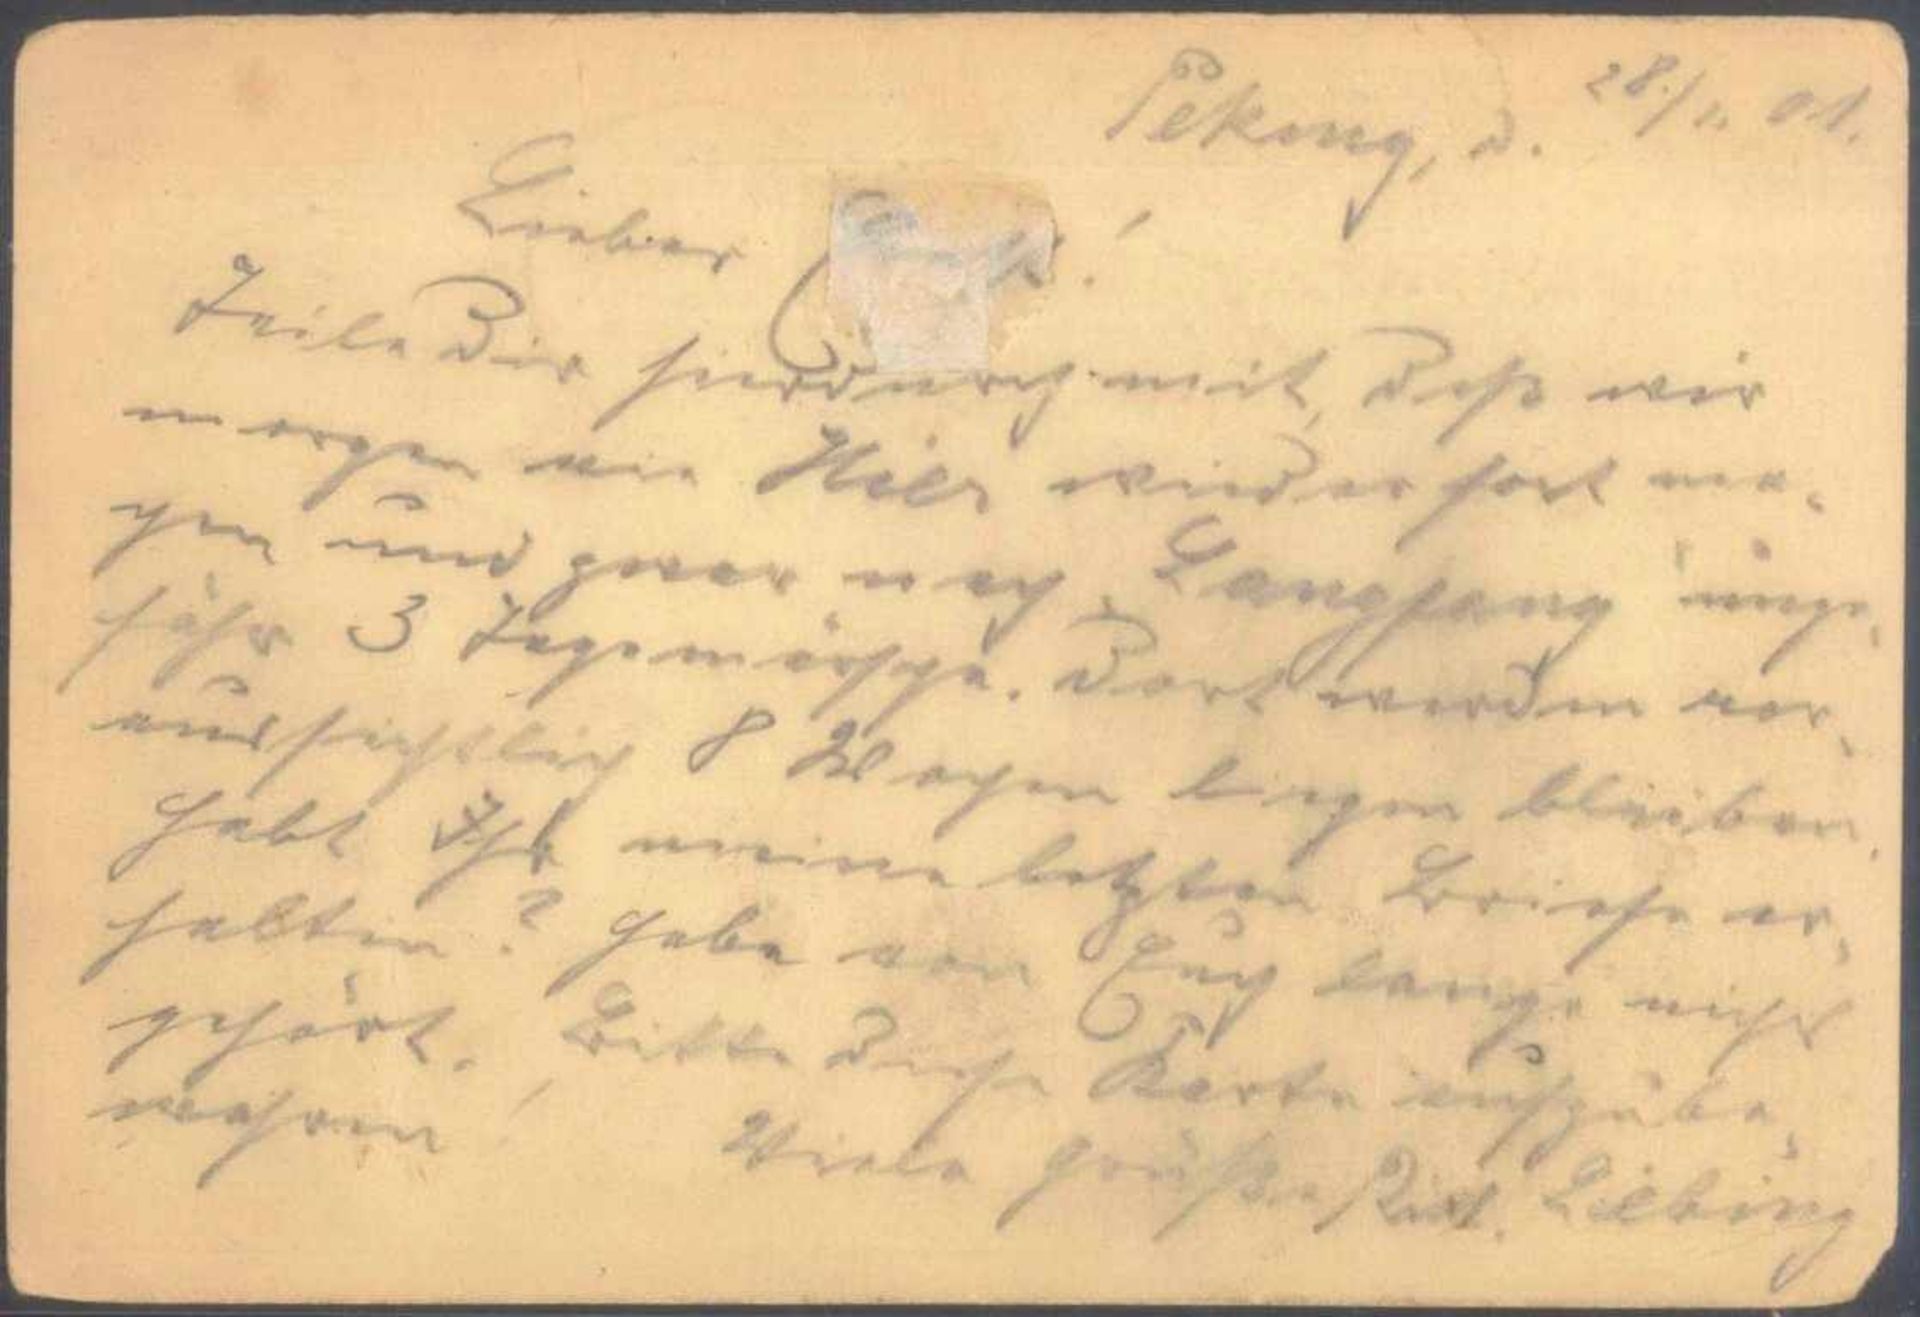 Peking, d. 28./1. 01.
Lieber
Teile Dir hierdurch mit, daß wir
morgen wieder fort ma-
chen und zwar nach Langfang unge-
fähr 3 Tagemärsche. Dort werden vor-
aussichtlich 8 Wochen liegen bleiben.
Habt Ihr meine letzten Briefe er-
halten? Habe von Euch lange nichts
gehört. Bitte diese Karte aufzube-
wahren!
Viele Grüße Rich. Liebing